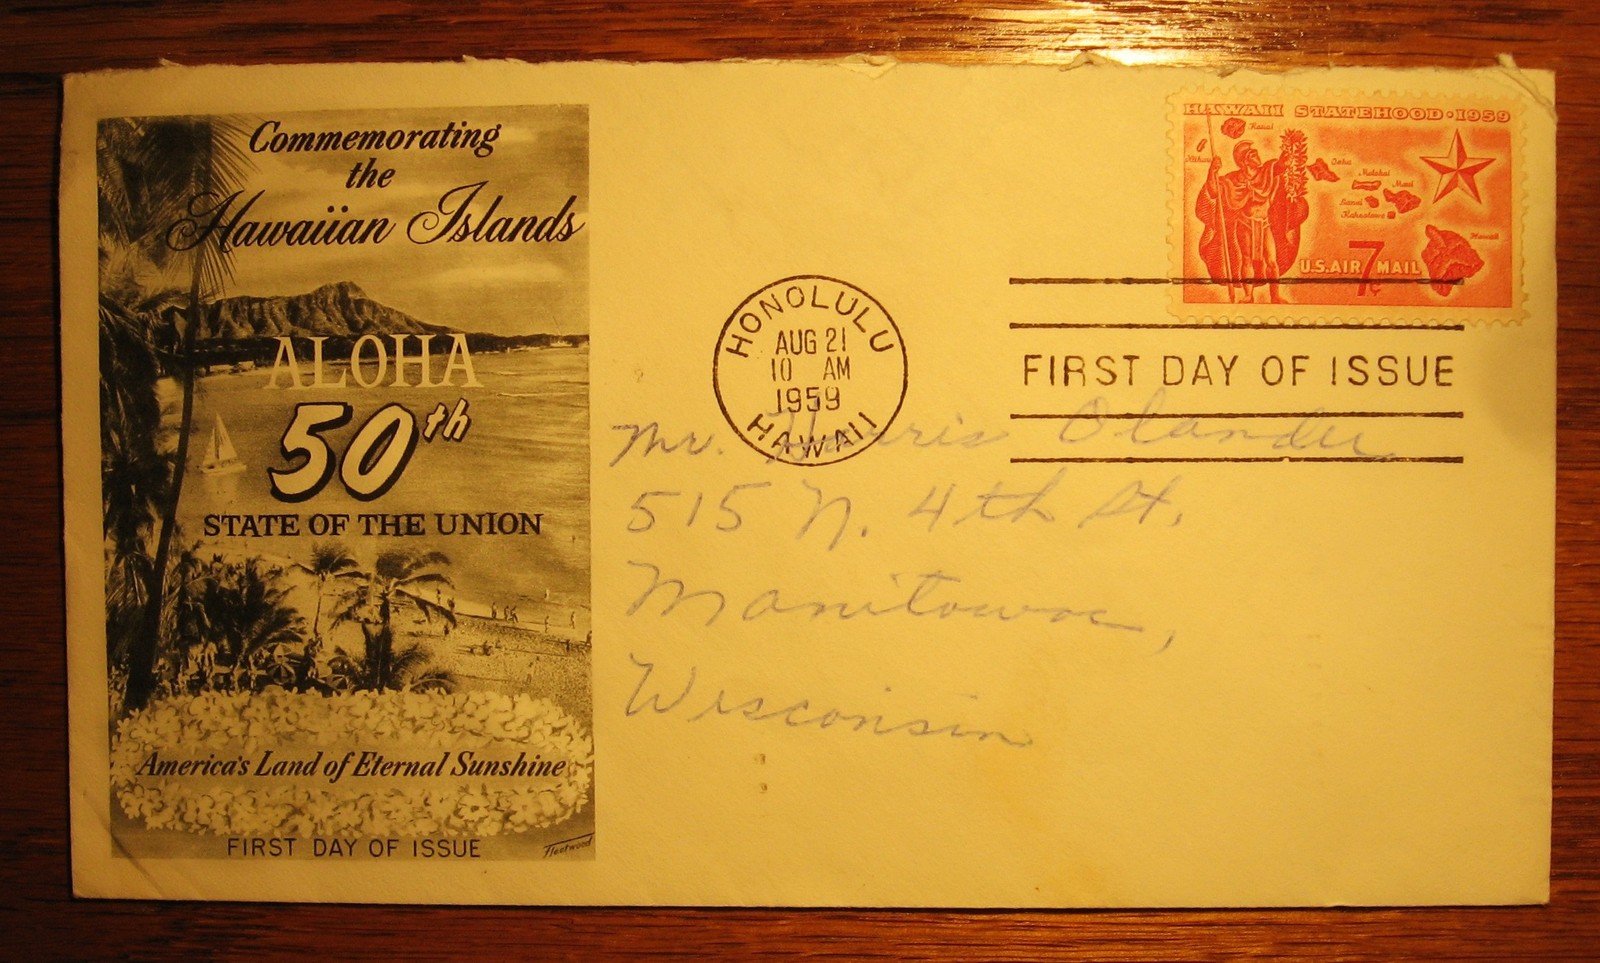 Commemorating
the
Hawaiian Islands
ALOHA
50th
STATE OF THE UNION
America's Land of Eternal Sunshine
FIRST DAY OF ISSUE
Fleetwood
HONOLULU
AUG 21
10 AM
1959
HAWAII
HAWAII STATEHOOD·1959
Kauai
Niihau
Oahu
Molokai
Maui
Lanai
Kahoolawe
Hawaii
U.S. AIR MAIL
7c
FIRST DAY OF ISSUE
Mr. Harris Olander
515 N. 4th St.
Manitowoc,
Wisconsin